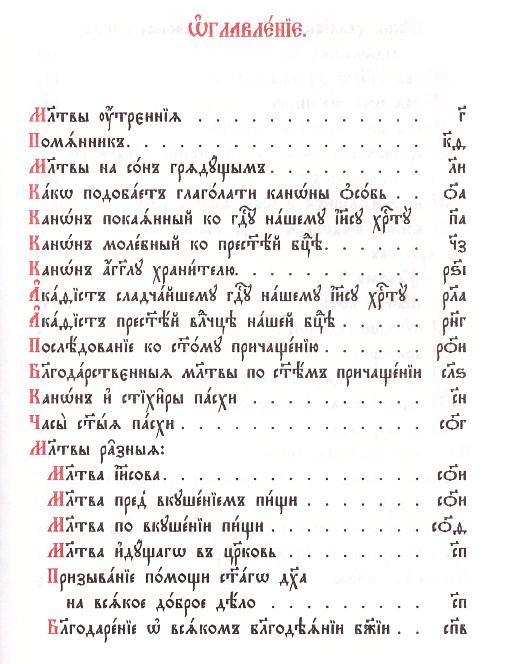 Ѡ҆главле́нїе.
Мл҃твы ᲂу҆́трєннїѧ . . . . . . . . . . . . г҃
Помѧ́нникъ . . . . . . . . . . . . . . . к҃д
Мл҃твы на со́нъ грѧдꙋ́щымъ . . . . . . . . . л҃и
Ка́кѡ подоба́етъ глаго́лати канѡ́ны ѻ҆со́бь . . . ѻ҃а
Канѡ́нъ покаѧ́нный ко гдⷭ҇ꙋ на́шемꙋ і҆и҃сꙋ хрⷭ҇тꙋ̀ п҃а
Канѡ́нъ моле́бный ко прест҃ѣ́й бц҃ѣ . . . . . . ч҃з
Канѡ́нъ а҆́гг҃лꙋ храни́телю . . . . . . . . . . рѕ҃і
А҆ка́ѳїстъ сладча́йшемꙋ гдⷭ҇ꙋ на́шемꙋ і҆и҃сꙋ хрⷭ҇тꙋ̀ . рл҃а
А҆ка́ѳїстъ прест҃ѣ́й влⷣчцѣ на́шей бц҃ѣ . . . . . рн҃г
Послѣ́дованїе ко ст҃о́мꙋ причаще́нїю . . . . . . рѻ҃и
Бл҃года́рствєнныѧ мл҃твы по ст҃ѣ́мъ причаще́нїи сл҃ѕ
Канѡ́нъ и҆ стїхи̑ры па́схи . . . . . . . . . . сн҃
Часы̀ ст҃ы́ѧ па́схи . . . . . . . . . . . . . сѻ҃г
Мл҃твы ра̑зныѧ:
Мл҃тва і҆и҃сова . . . . . . . . . . . . . сѻ҃и
Мл҃тва пред̾ вкꙋше́нїемъ пи́щи . . . . . . . сѻ҃и
Мл҃тва по вкꙋше́нїи пи́щи . . . . . . . . . сѻ҃д
Мл҃тва и҆дꙋ́щагѡ въ цр҃ковь . . . . . . . . сп҃
Призыва́нїе по́мощи ст҃а́гѡ дх҃а
на всѧ́кое до́брое дѣ́ло . . . . . . . . . сп҃
Бл҃годаре́нїе ѡ҆ всѧ́комъ бл҃годѣѧ́нїи бж҃їи . . сп҃в